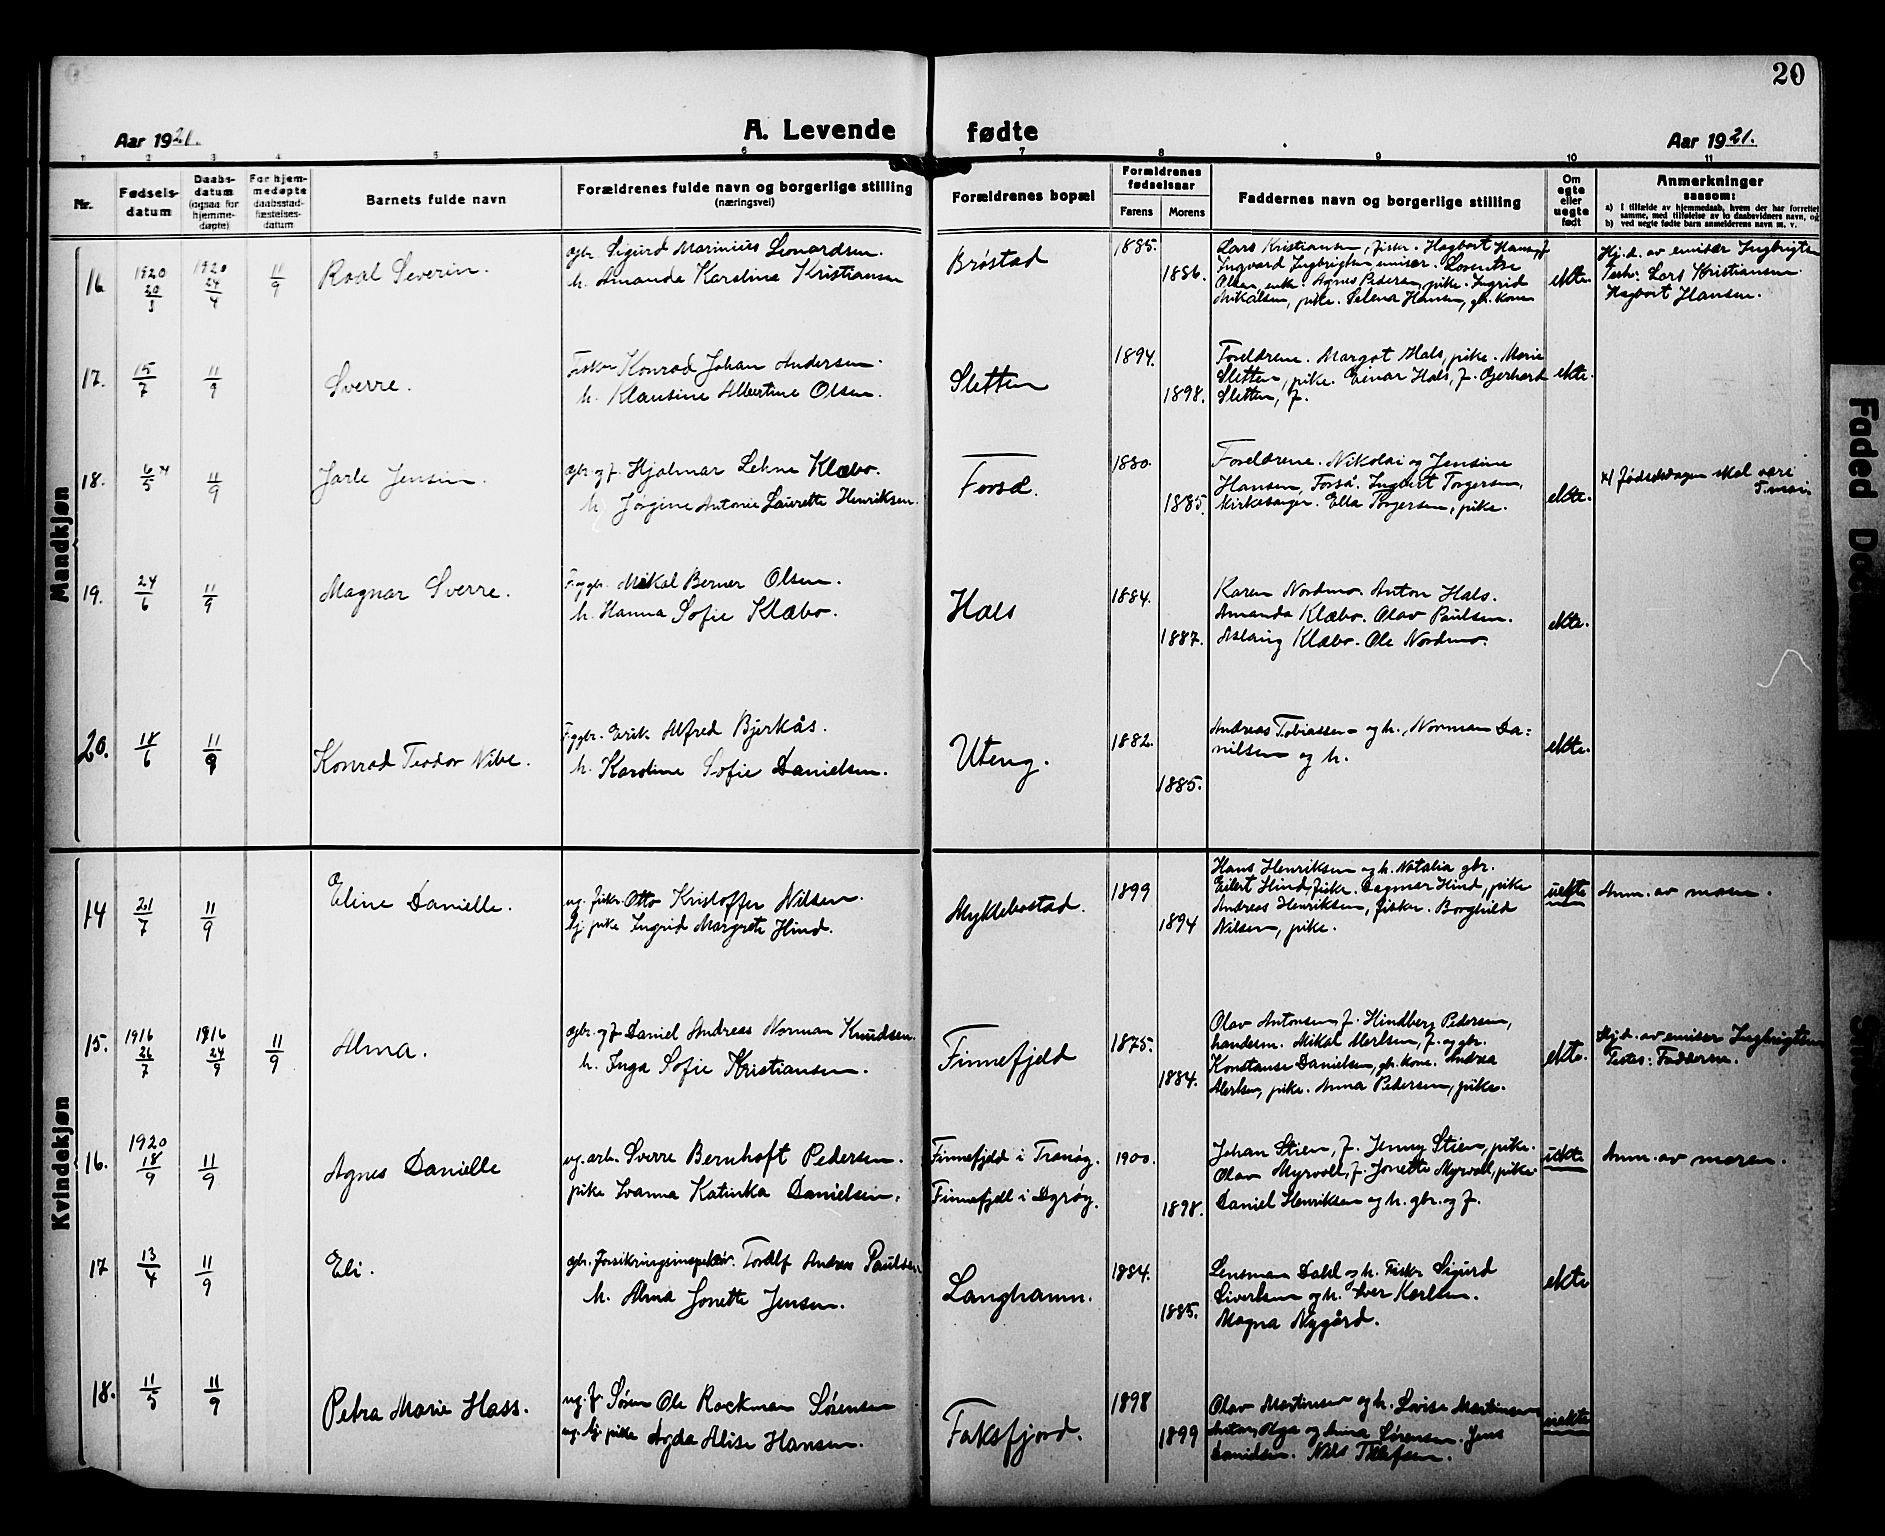 20
Aar 1921.
A. Levende fødte
Aar 1921.
1 2 3 4 5 6 7 8 9 10 11
Nr.
Fødsels-
datum
Daabs-
datum
(ogsaa for
hjemme-
døpte)
For hjem-
medøpte
daabsstad-
fæstelses-
datum
Barnets fulde navn
Forældrenes fulde navn og borgerlige stilling
(næringsvei)
Forældrenes bopæl
Forældrenes
fødselsaar
Farens Morens
Faddernes navn og borgerlige stilling
Om
egte
eller
uegte
født
Anmerkninger
saasom:
a) I tilfælde av hjemmedaab, hvem der har forrettet
samme, med tilføielse av to daabsvidners navn, og
b) ved uegte fødte barn anmelderens navn m. v.
Mandkjøn
16. 1920 20/3 1920 24/4 11/9
Roal Severin.
gbr. Sigurd Marinius Leonardsen.
h. Amanda Karolina Kristiansen
Brøstad
1885.
1886.
Lars Kristiansen, fisker. Hagbart Hansen, f.
Ingvard Ingbrigtsen emisær. Lorentse
Olsen, enke. Agnes Pedersen, pike. Ingrid
Mikalsen, pike. Salena Hansen, gb. kone
ekte.
Hj.d. av emisær Ingbrigtsen
Testv. Lars Kristiansen.
Hagbart Hansen.
17. 15/7 11/9
Sverre.
Fisker Konrad Johan Andersen.
h. Klausine Albertine Olsen.
Sletten
1894.
1898.
Foreldrene. Margot Hals, pike. Marie
Sletten, pike. Einar Hals, f. Gerhard
Sletten, f.
ekte.
18. 6/5 x) 11/9
Jarle Jensin.
gbr. og f. Hjalmar Lehne Klæbo.
h. Jørgine Antonie Laurette Henriksen.
Forså.
1880.
1885.
Foreldrene. Nikolai og Jensine
Hansen, Forså. Ingbert Torgersen,
kirkesanger. Ella Torgersen, pike.
ekte.
x) Fødselsdagen skal være
7. mai.
19. 24/6 11/9
Magnar Sverre.
F. og gbr. Mikal Berner Olsen.
h. Hanna Sofie Klæbo.
Hals
1884.
1887.
Karen Nordmo. Anton Hals.
Amanda Klæbo. Olav Paulsen.
Aslaug Klæbo. Ole Nordmo.
ekte.
20. 18/6 11/9
Konrad Teodor Nibe.
F. og gbr. Erik Alfred Bjerkås.
h. Karoline Sofie Danielsen.
Uteng.
1882.
1885.
Andreas Tobiassen og h., Norman Da=
nilsen og h.
ekte.
Kvindekjøn
14 21/7 11/9
Eline Danielle.
ug. fisker Otto Kristoffer Nilsen.
pike Ingrid Margrete Hind.
Myklebostad.
1899
1894
Hans Henriksen og h. Natalia gbr.
Eilert Hind, fisker. Dagmar Hind, pike
Andreas Henriksen, fisker. Borghild
Nilsen, pike.
uekte
Anm. av moren.
15. 1916 26/7 1916 24/9 11/9
Alma.
gbr. og f. Daniel Andreas Norman Knudsen.
h. Inga Sofie Kristiansen.
Finnefjeld
1875.
1884.
Olav Antonsen, f. Hindberg Pedersen,
handelsm. Mikal Merlsen, f. og gbr.
Konstanse Danielsen, gb. kone. Andrea
Merlsen, pike. Anna Pedersen, pike.
ekte.
Hj.d. av emisær Ingbrigtsen
Testes: Fadderne.
16. 1920 18/9 11/9
Agnes Danielle
ug. arb. Sverre Bernhoft Pedersen.
pike Ivanna Katinka Danielsen.
Finnefjeld i Tranøy.
Finnefjell i Dyrøy.
1900.
1898.
Johan Stien, f. Jenny Stien, pike.
Olav Myrvoll, f. Jonette Myrvoll, pike
Daniel Henriksen og h. gbr. og f.
uekte
Anm. av moren.
17 13/4 11/9
Eli.
gbr. forsikringsinspektør. Toralf Andreas Paulsen
h. Alma Jonette Jensen.
Langhamn.
1884.
1885.
Lensman Dahl og h. Fisker Sigurd
Sivertsen og h. Iver Karlsen.
Magna Nygård.
ekte
18. 11/5 11/9
Petra Marie Hass.
ug. f. Søren Ole Rockman Sørensen
ug. pike Agda Alise Hansen.
Faksfjord.
1898
1899
Olav Martinsen og h. Lovise Martinsen
og Anna Sørensen. Jens
Danielsen. Nils Tellefsen.
uekte
Faded Doc